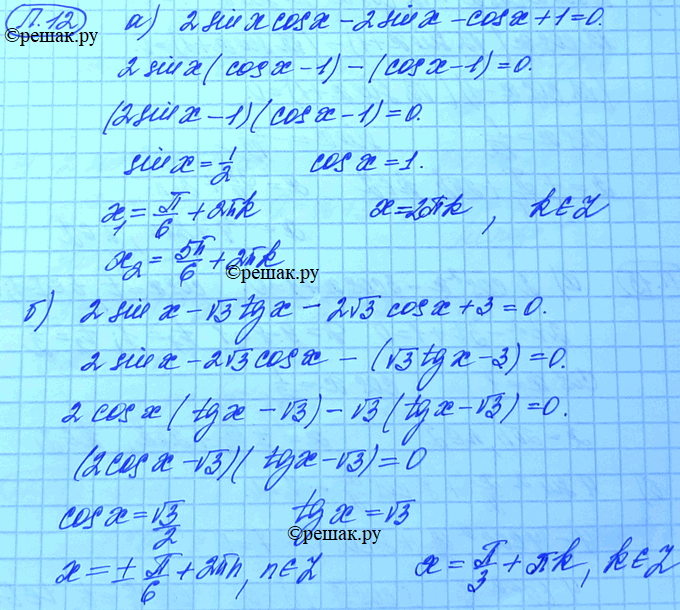 П.12
©решак.ру
а) 2 sin x cos x − 2 sin x − cos x + 1 = 0.
2 sin x (cos x − 1) − (cos x − 1) = 0.
(2 sin x − 1)(cos x − 1) = 0.
sin x = 1/2 cos x = 1.
x₁ = π/6 + 2πk x = 2πk, k ∈ Z
x₂ = 5π/6 + 2πk
©решак.ру
б) 2 sin x − √3 tg x − 2√3 cos x + 3 = 0.
2 sin x − 2√3 cos x − (√3 tg x − 3) = 0.
2 cos x (tg x − √3) − √3 (tg x − √3) = 0.
(2 cos x − √3)(tg x − √3) = 0
cos x = √3/2 tg x = √3
©решак.ру
x = ± π/6 + 2πn, n ∈ Z x = π/3 + πk, k ∈ Z